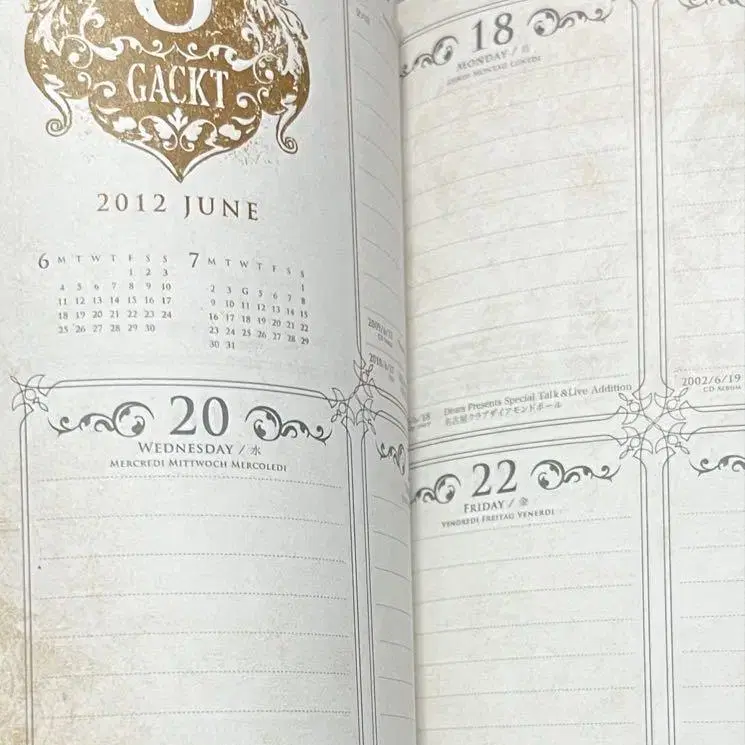 GACKT
2012 JUNE
6 M T W T F S S
1 2 3
4 5 6 7 8 9 10
11 12 13 14 15 16 17
18 19 20 21 22 23 24
25 26 27 28 29 30
7 M T W T F S S
1
2 3 G 5 6 7 8
9 10 11 12 13 14 15
16 17 18 19 20 21 22
23 24 25 26 27 28 29
30 31
20
WEDNESDAY / 水
MERCREDI MITTWOCH MERCOLEDI
18
MONDAY / 月
LUNDI MONTAG LUNEDI
Dears Presents Special Talk & Live Addition
名古屋クラブダイアモンドホール
2002/6/19
CD ALBUM
22
FRIDAY / 金
VENDREDI FREITAG VENERDI